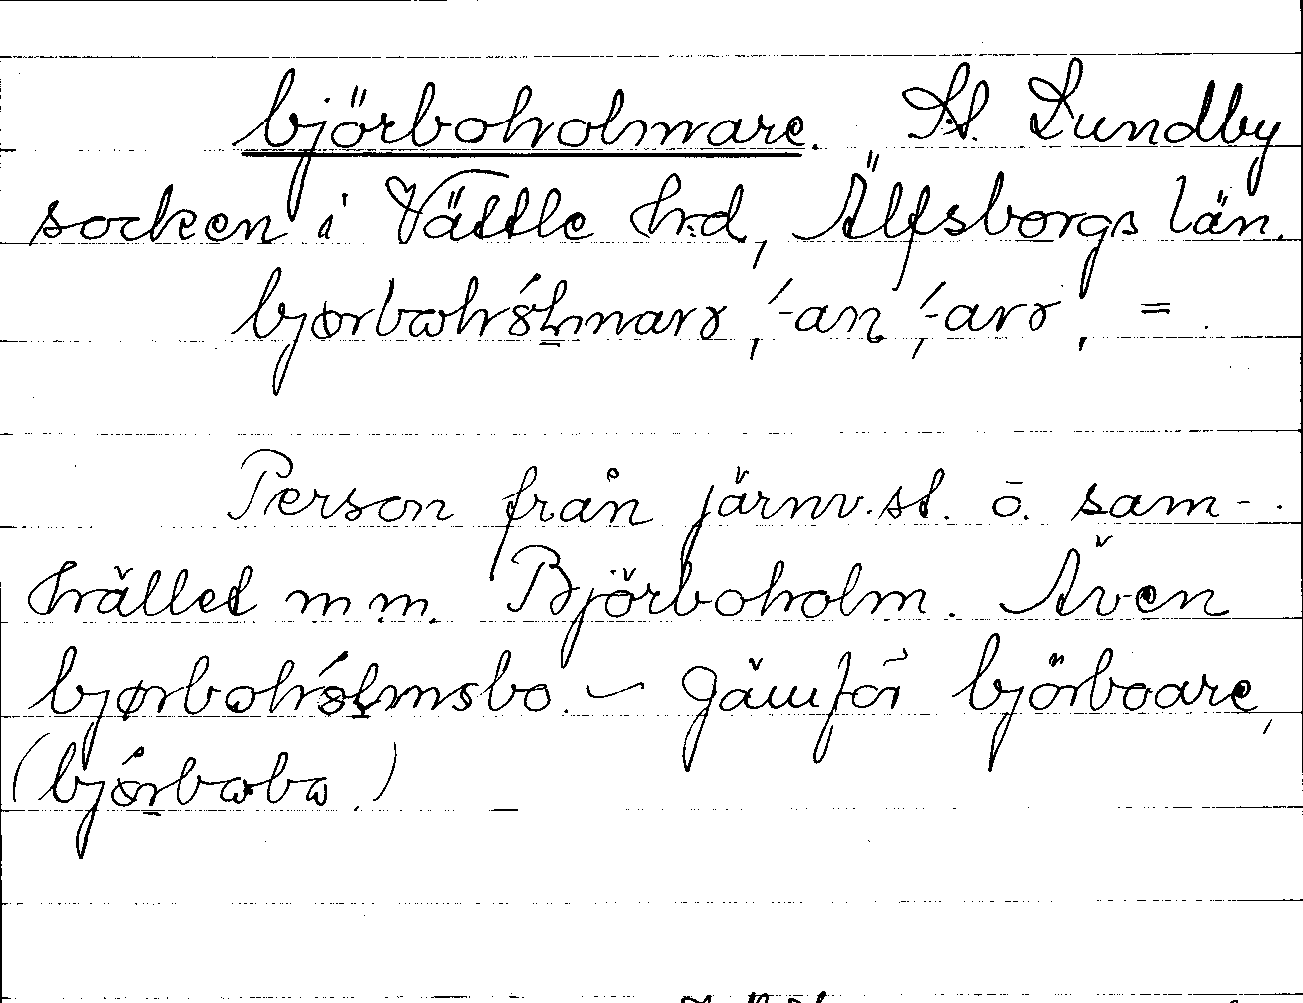 björboholmare. St. Lundby
socken i Vättle hrd, Älfsborgs län.
bjørbωhólmarɤ, -́an, -́arɤ, =.
Person från järnv.st. o. sam-
hället m.m. Björboholm. Även
bjørbohólmsbo. – Jämför björboare,
(bjǿrbωbω.)